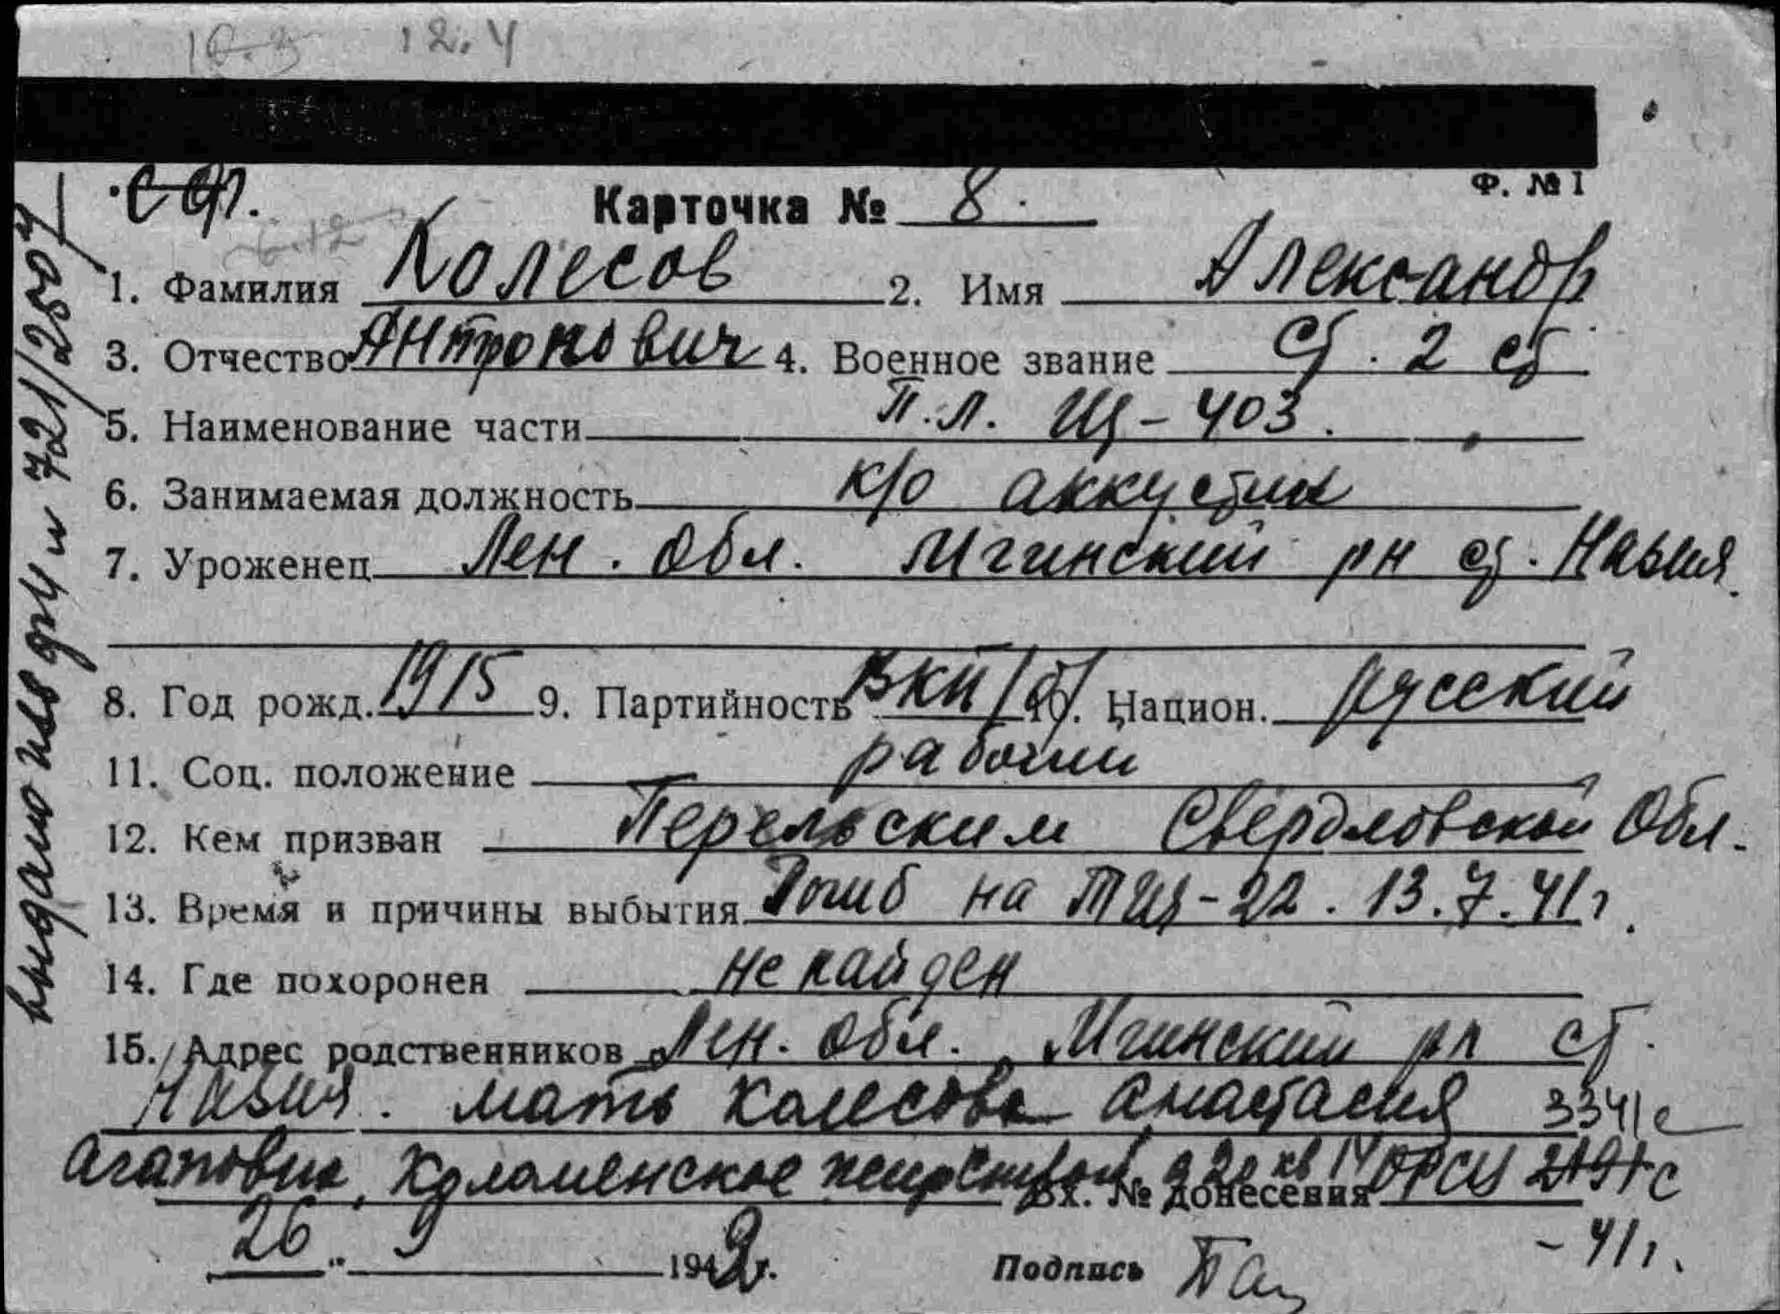 12.4
Ф. №1
Карточка № 8.
1. Фамилия Колесов 2. Имя Александр
3. Отчество Антропович 4. Военное звание ст. 2 ст
5. Наименование части П.Л. Щ-403.
6. Занимаемая должность к/о аккустик
7. Уроженец Лен. обл. Мгинский рн ст. Назия
8. Год рожд. 1915 9. Партийность ВКП/б/ 10. Национ. русский
11. Соц. положение рабочий
12. Кем призван Свердловской Обл.
13. Время и причины выбытия Погиб на ТЩ-22. 13.7.41г.
14. Где похоронен не найден
15. Адрес родственников Лен. обл. Мгинский рн ст.
Назия. мать Колесова Анастасия 3341с
Агаповна, Коломенское д 20 кв 14
Вх. № донесения ОРСУ
-41г.
26 „ 9 1942г. Подпись
выдано изв 721/2504